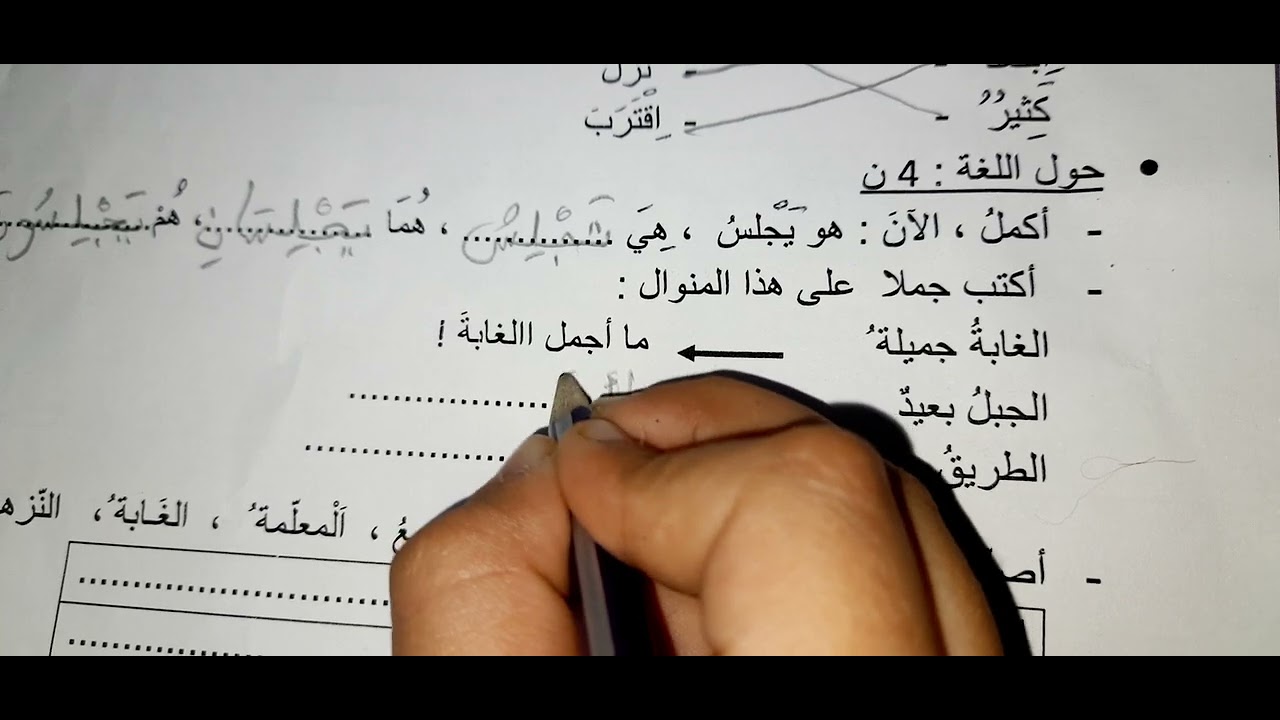 نزل -
كَثِيرٌ - - اِقْتَرَبَ
• حول اللغة : 4 ن
- أكملُ ، الآنَ : هو يَجْلسُ ، هِيَ تَجْلِسُ ، هُمَا يَجْلِسَانِ، هُمْ يَجْلِسُو
- أكتب جملا على هذا المنوال :
الغابةُ جميلة ُ ما أجمل االغابةَ !
الجبلُ بعيدٌ ................
الطريقُ ................
- أص ، اَلْمعلّمة ُ ، الغَابة ُ، النّزه